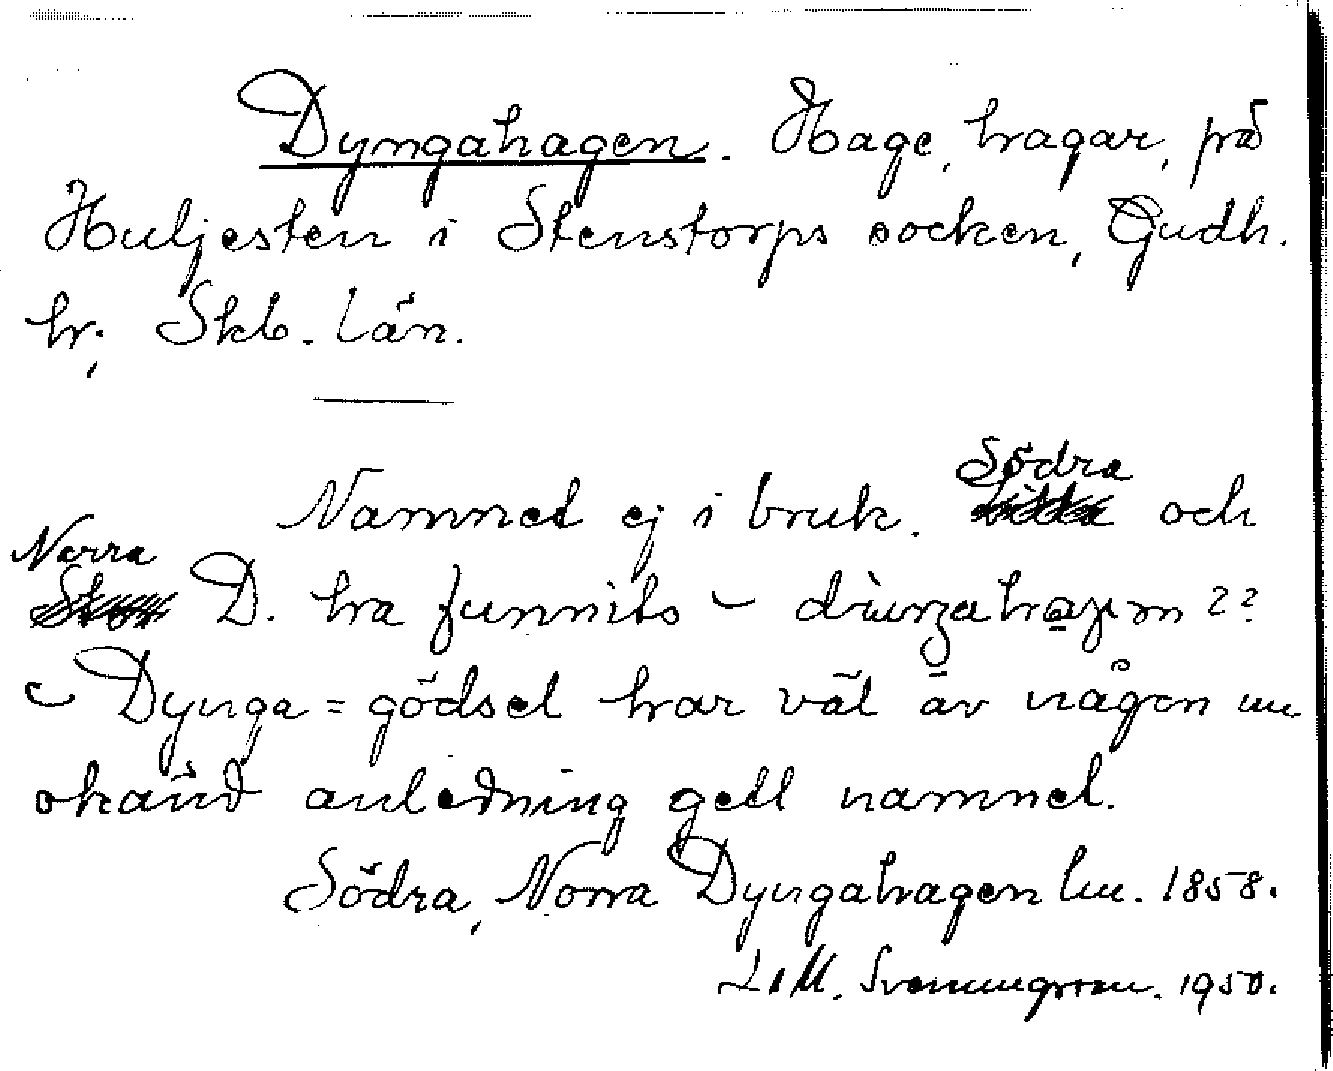 Dyngahagen. Hage, hagar, på
Huljesten i Stenstorps socken, Gudh.
hr., Skb. län.
Namnet ej i bruk. Södra och
Norra D. ha funnits –
– Dynga = gödsel har väl av någon nu
okänd anledning gett namnet.
Södra, Norra Dyngahagen lm. 1858.
L M. Svenungsson. 1950.